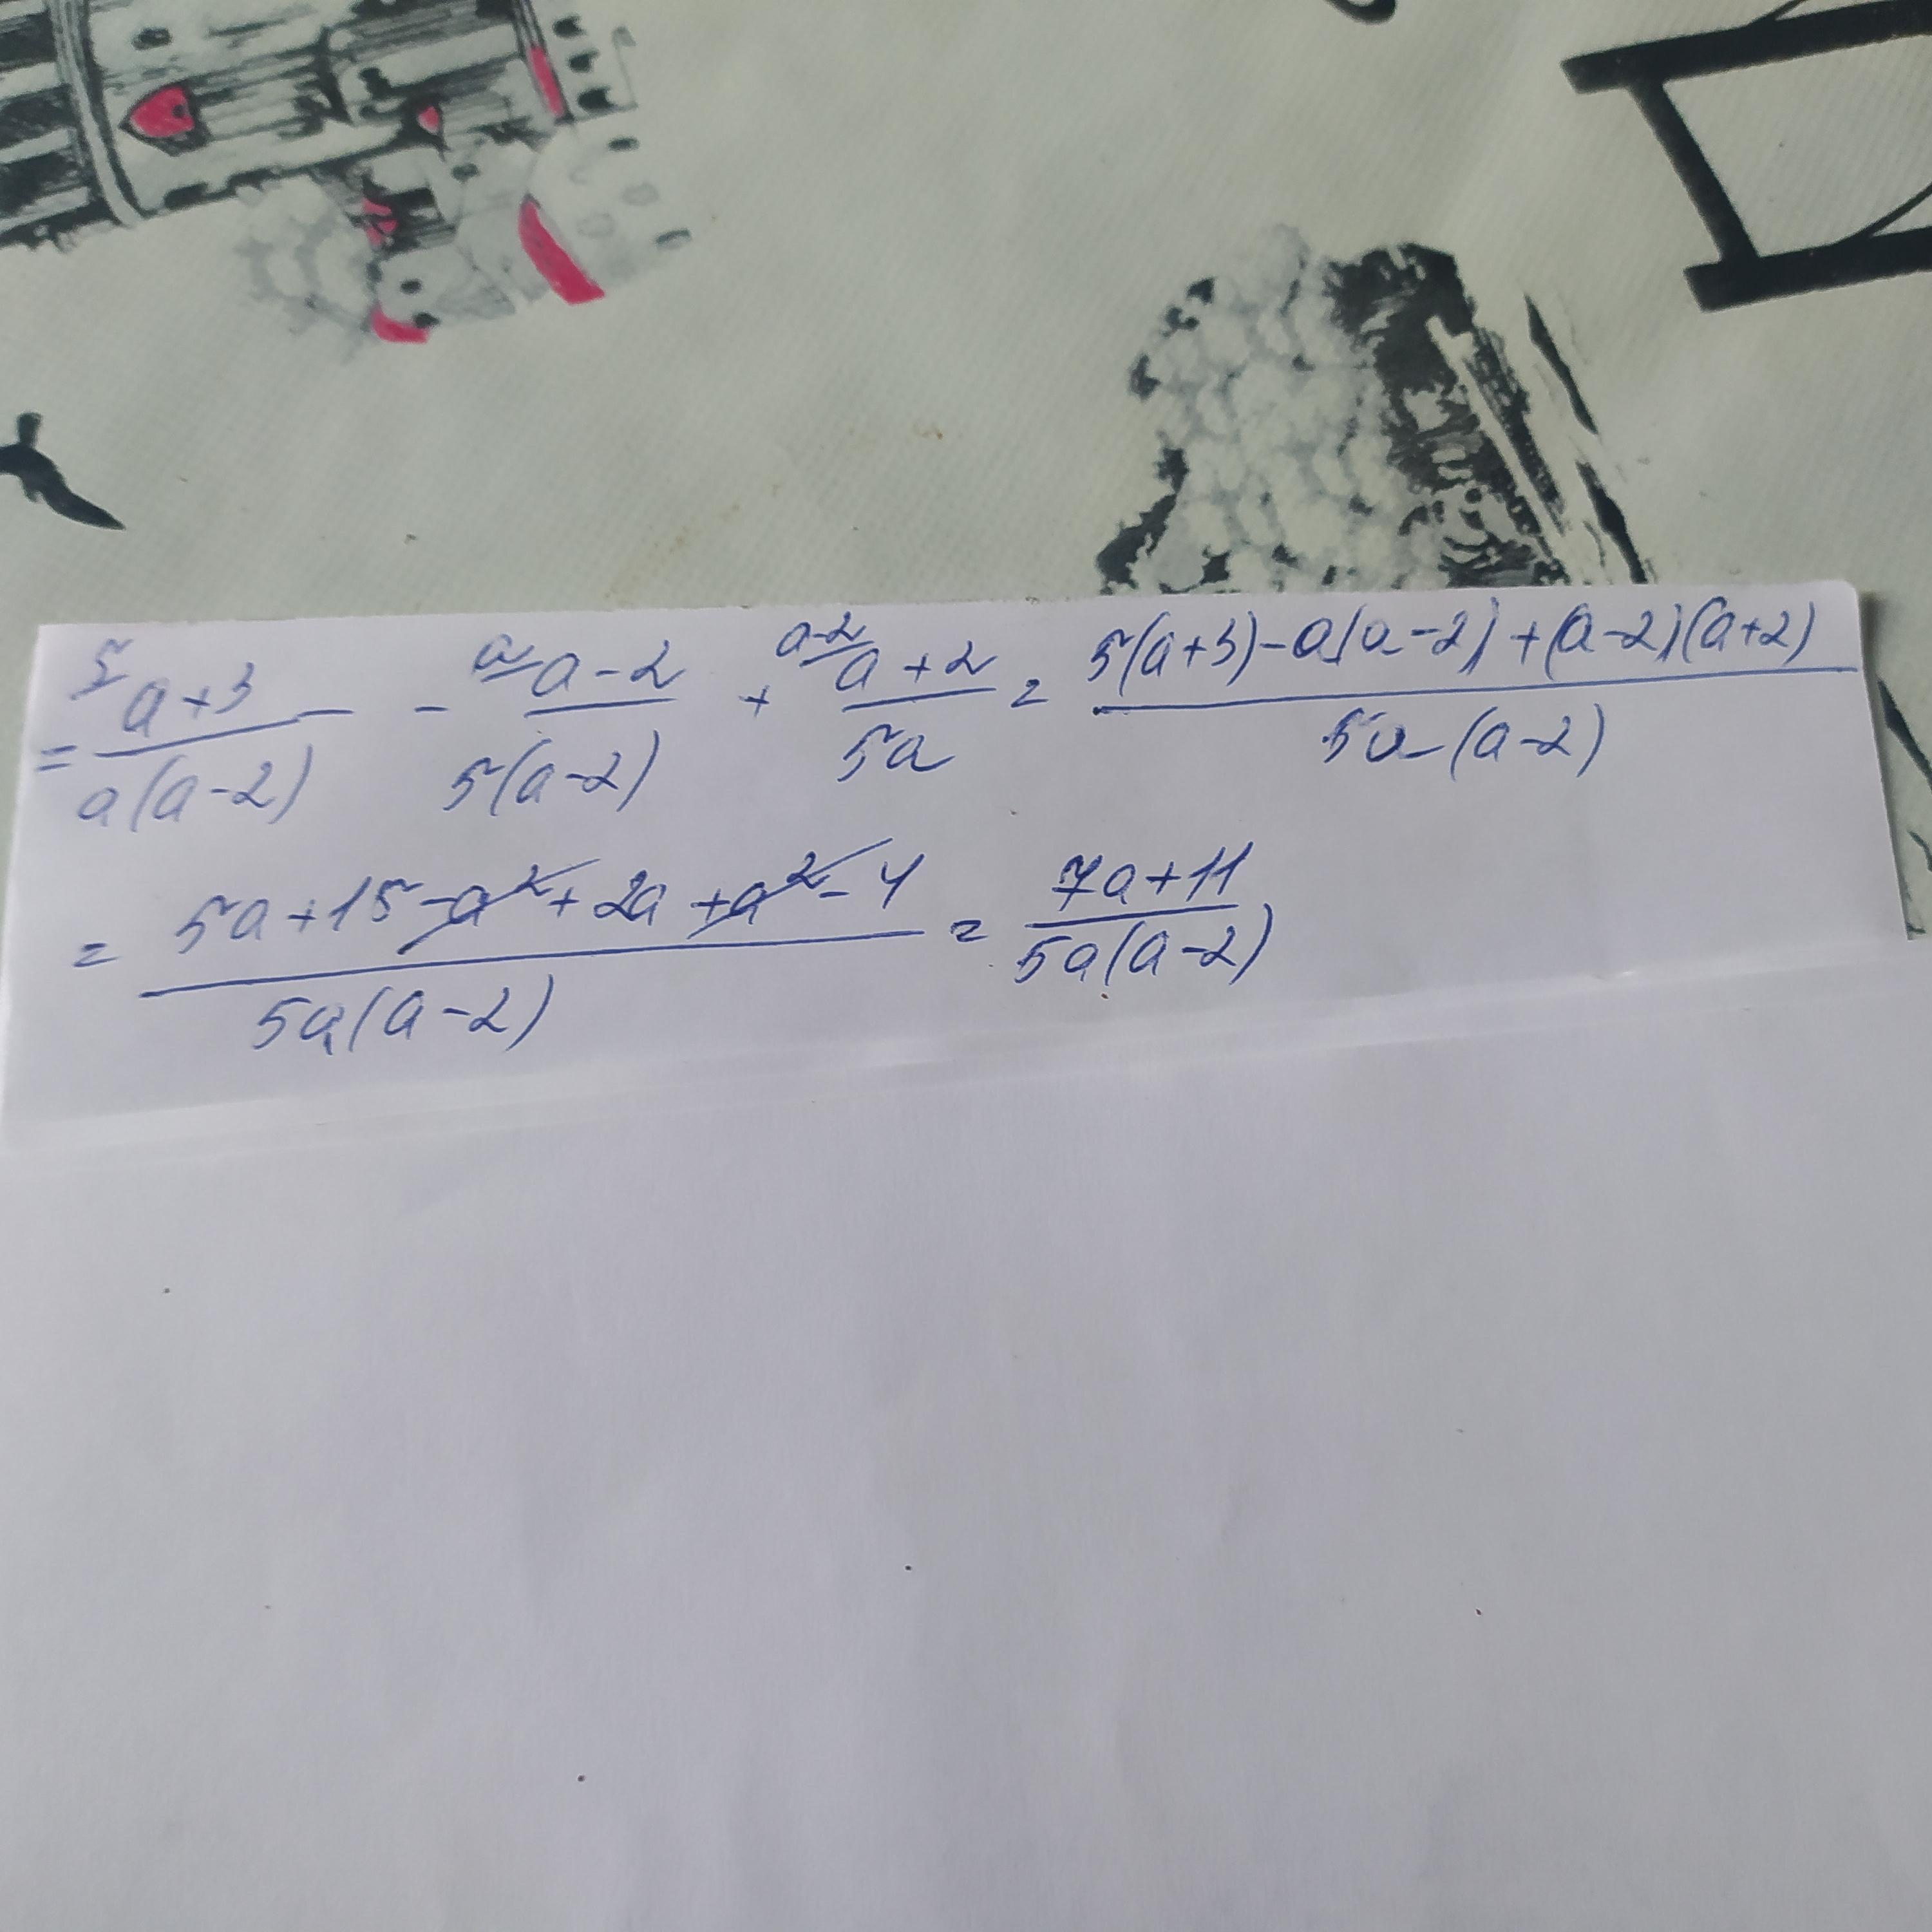 = ⁵⁄ a+3 / a(a-2) - ᵃ⁄ a-2 / 5(a-2) + ᵃ⁻²⁄ a+2 / 5a = 5(a+3)-a(a-2)+(a-2)(a+2) / 5a(a-2)
= 5a+15-a²+2a+a²-4 / 5a(a-2) = 7a+11 / 5a(a-2)